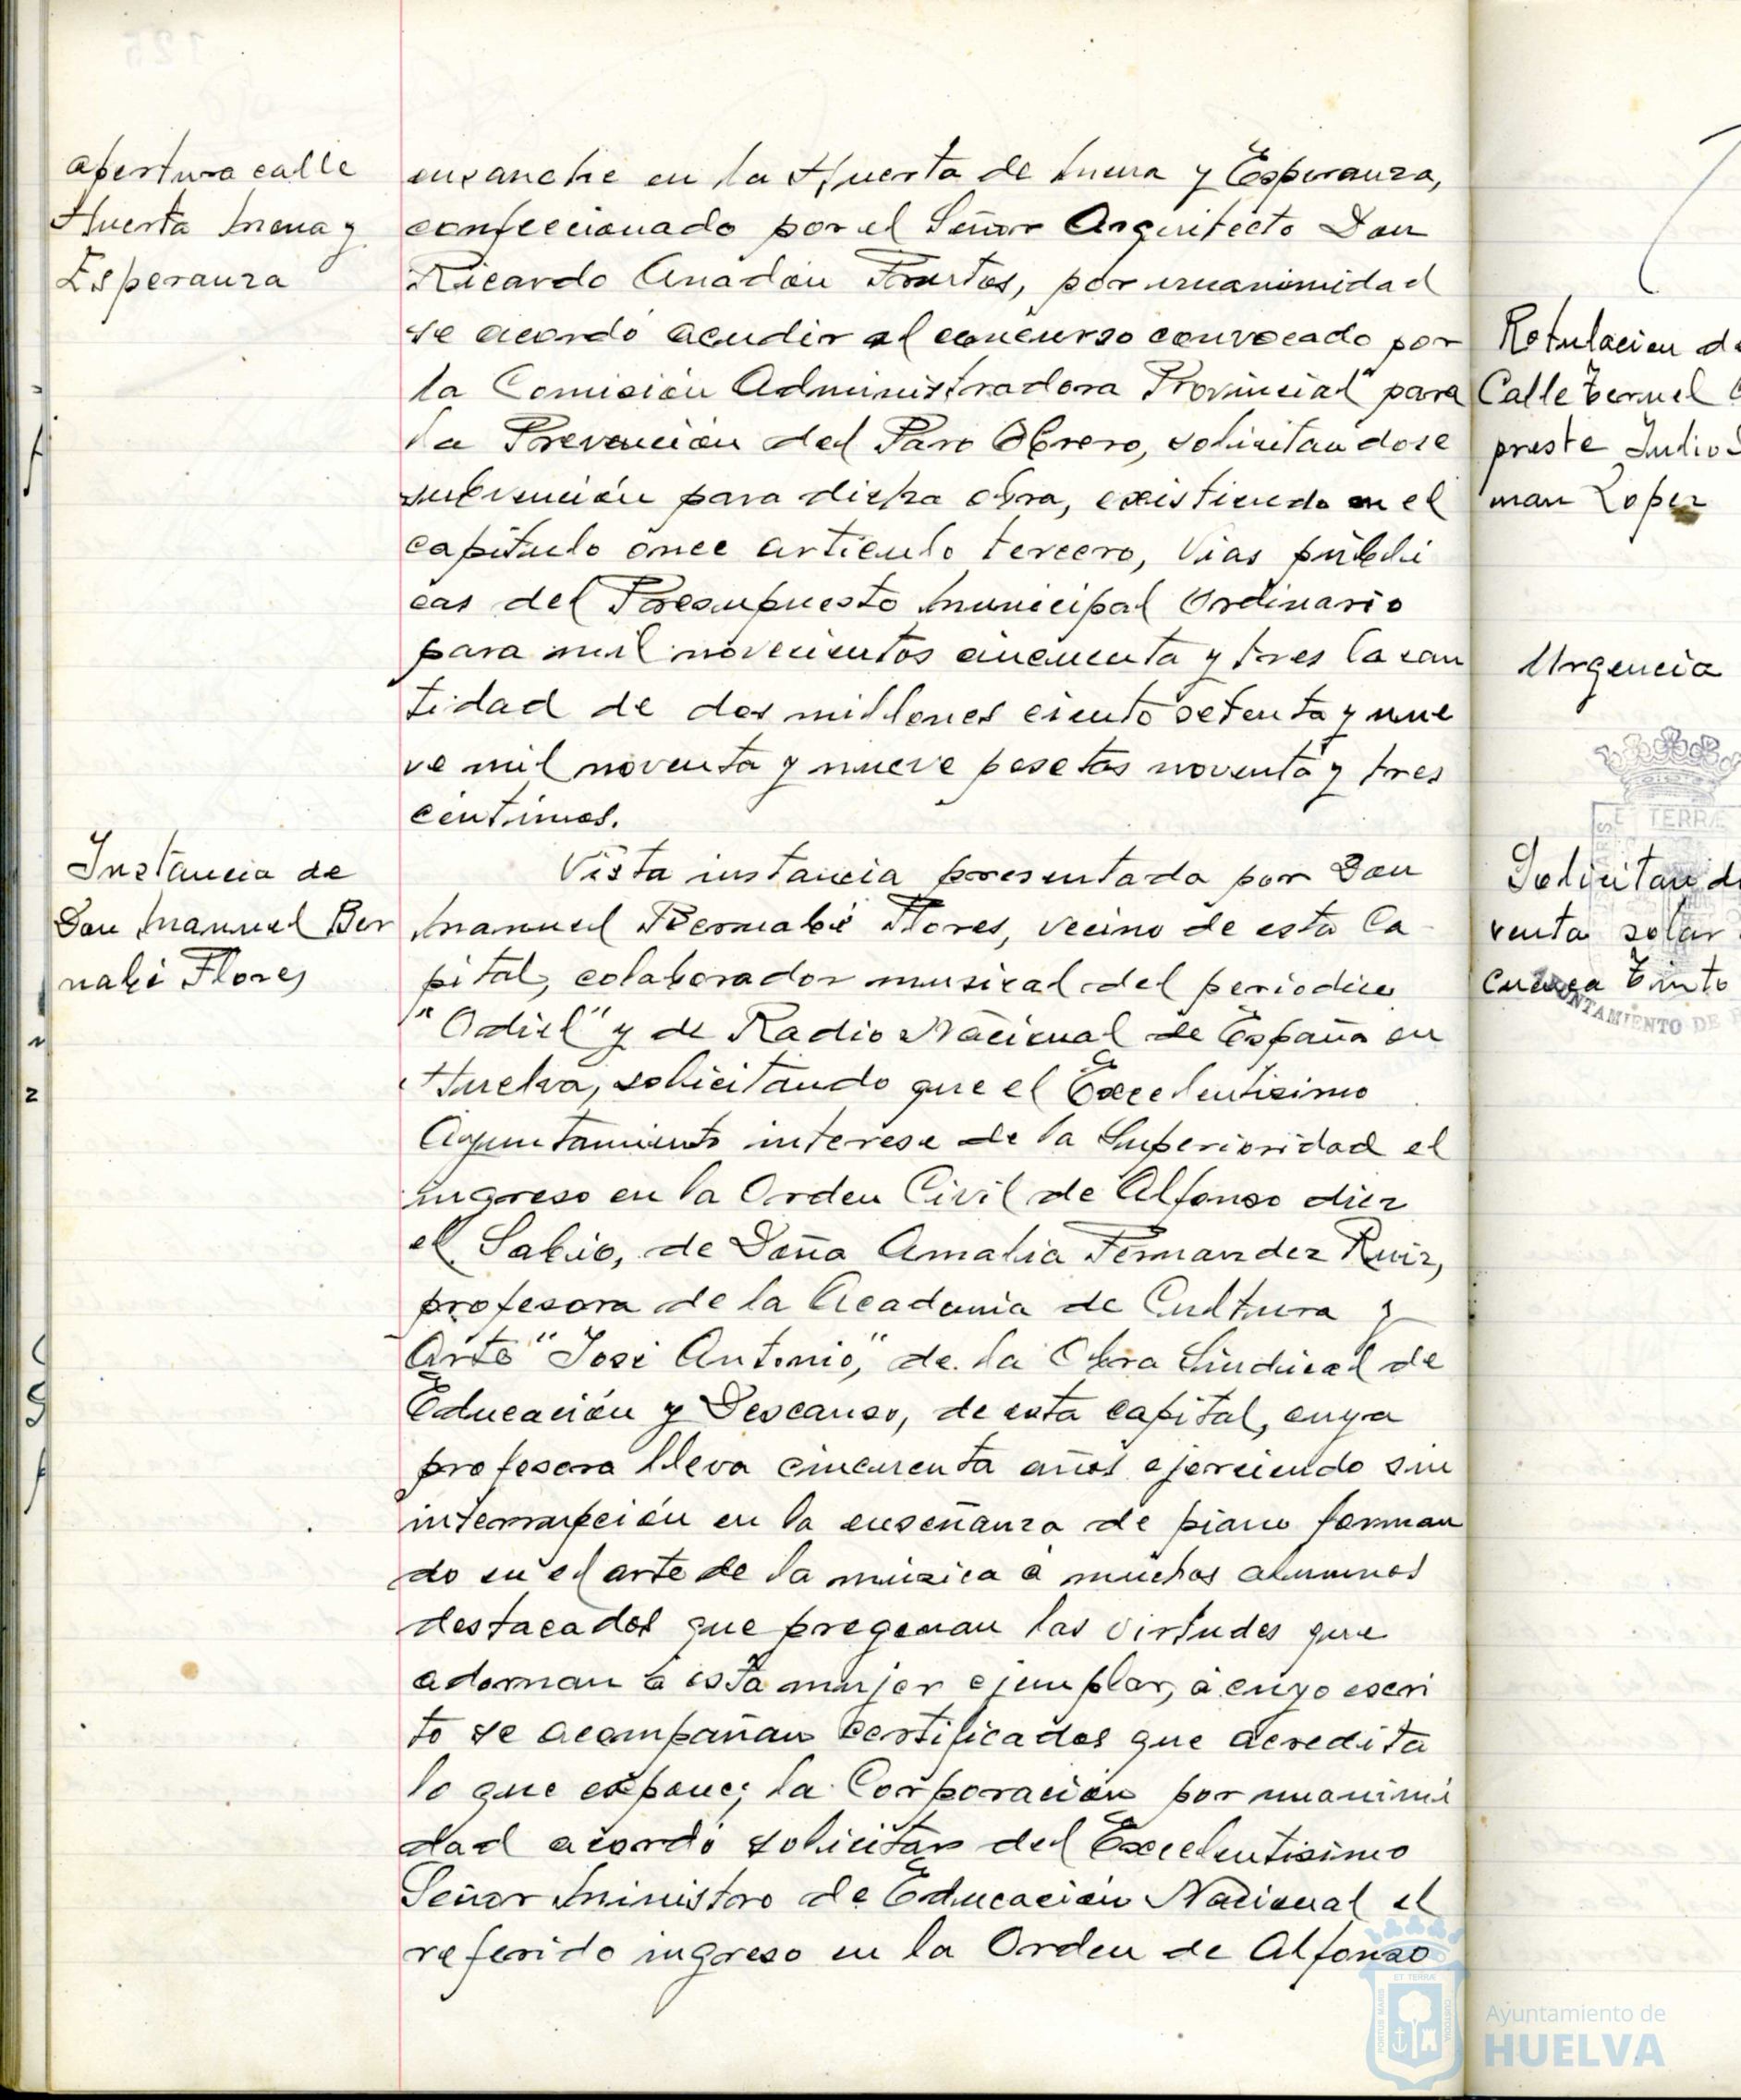 apertura calle
Huerta Mena y
Esperanza
ensanche en la Huerta de Mena y Esperanza,
confeccionado por el Señor Arquitecto Don
Ricardo Anadón Frutos, por unanimidad
se acordó acudir al concurso convocado por
la Comisión Administradora Provincial" para
la Prevención del Paro Obrero, solicitandose
subvención para dicha obra, existiendo en el
capítulo once articulo tercero, Vias públi
cas del Presupuesto Municipal Ordinario
para mil novecientos cincuenta y tres la can
tidad de dos millones ciento setenta y nue
ve mil noventa y nueve pesetas noventa y tres
centimos.
Instancia de
Don Manuel Ber
nabé Flores
Vista instancia presentada por Don
Manuel Bernabé Flores, vecino de esta Ca-
pital, colaborador musical del periodico
"Odiel" y de Radio Nacional de España en
Huelva, solicitando que el Excelentisimo
Ayuntamiento interese de la Superioridad el
ingreso en la Orden Civil de Alfonso diez
el Sabio, de Doña Amalia Fernandez Ruiz,
profesora de la Academia de Cultura y
Arte "José Antonio", de la Obra Sindical de
Educación y Descanso, de esta capital, cuya
profesora lleva cincuenta años ejerciendo sin
interrupción en la enseñanza de piano forman
do en el arte de la música a muchos alumnos
destacados que pregonan las virtudes que
adornan a esta mujer ejemplar, a cuyo escri
to se acompañan certificados que acredita
lo que expone; la Corporación por unanimi
dad acordó solicitar del Excelentisimo
Señor Ministro de Educación Nacional el
referido ingreso en la Orden de Alfonso
Rotulacion de
Calle Teruel
preste Julio
man Lopez
Urgencia
Solicitan d
venta solar
cuenca Tinto
ET TERRÆ
AYUNTAMIENTO DE
ET TERRÆ
PORTUS MARIS
CUSTODIA
Ayuntamiento de
HUELVA